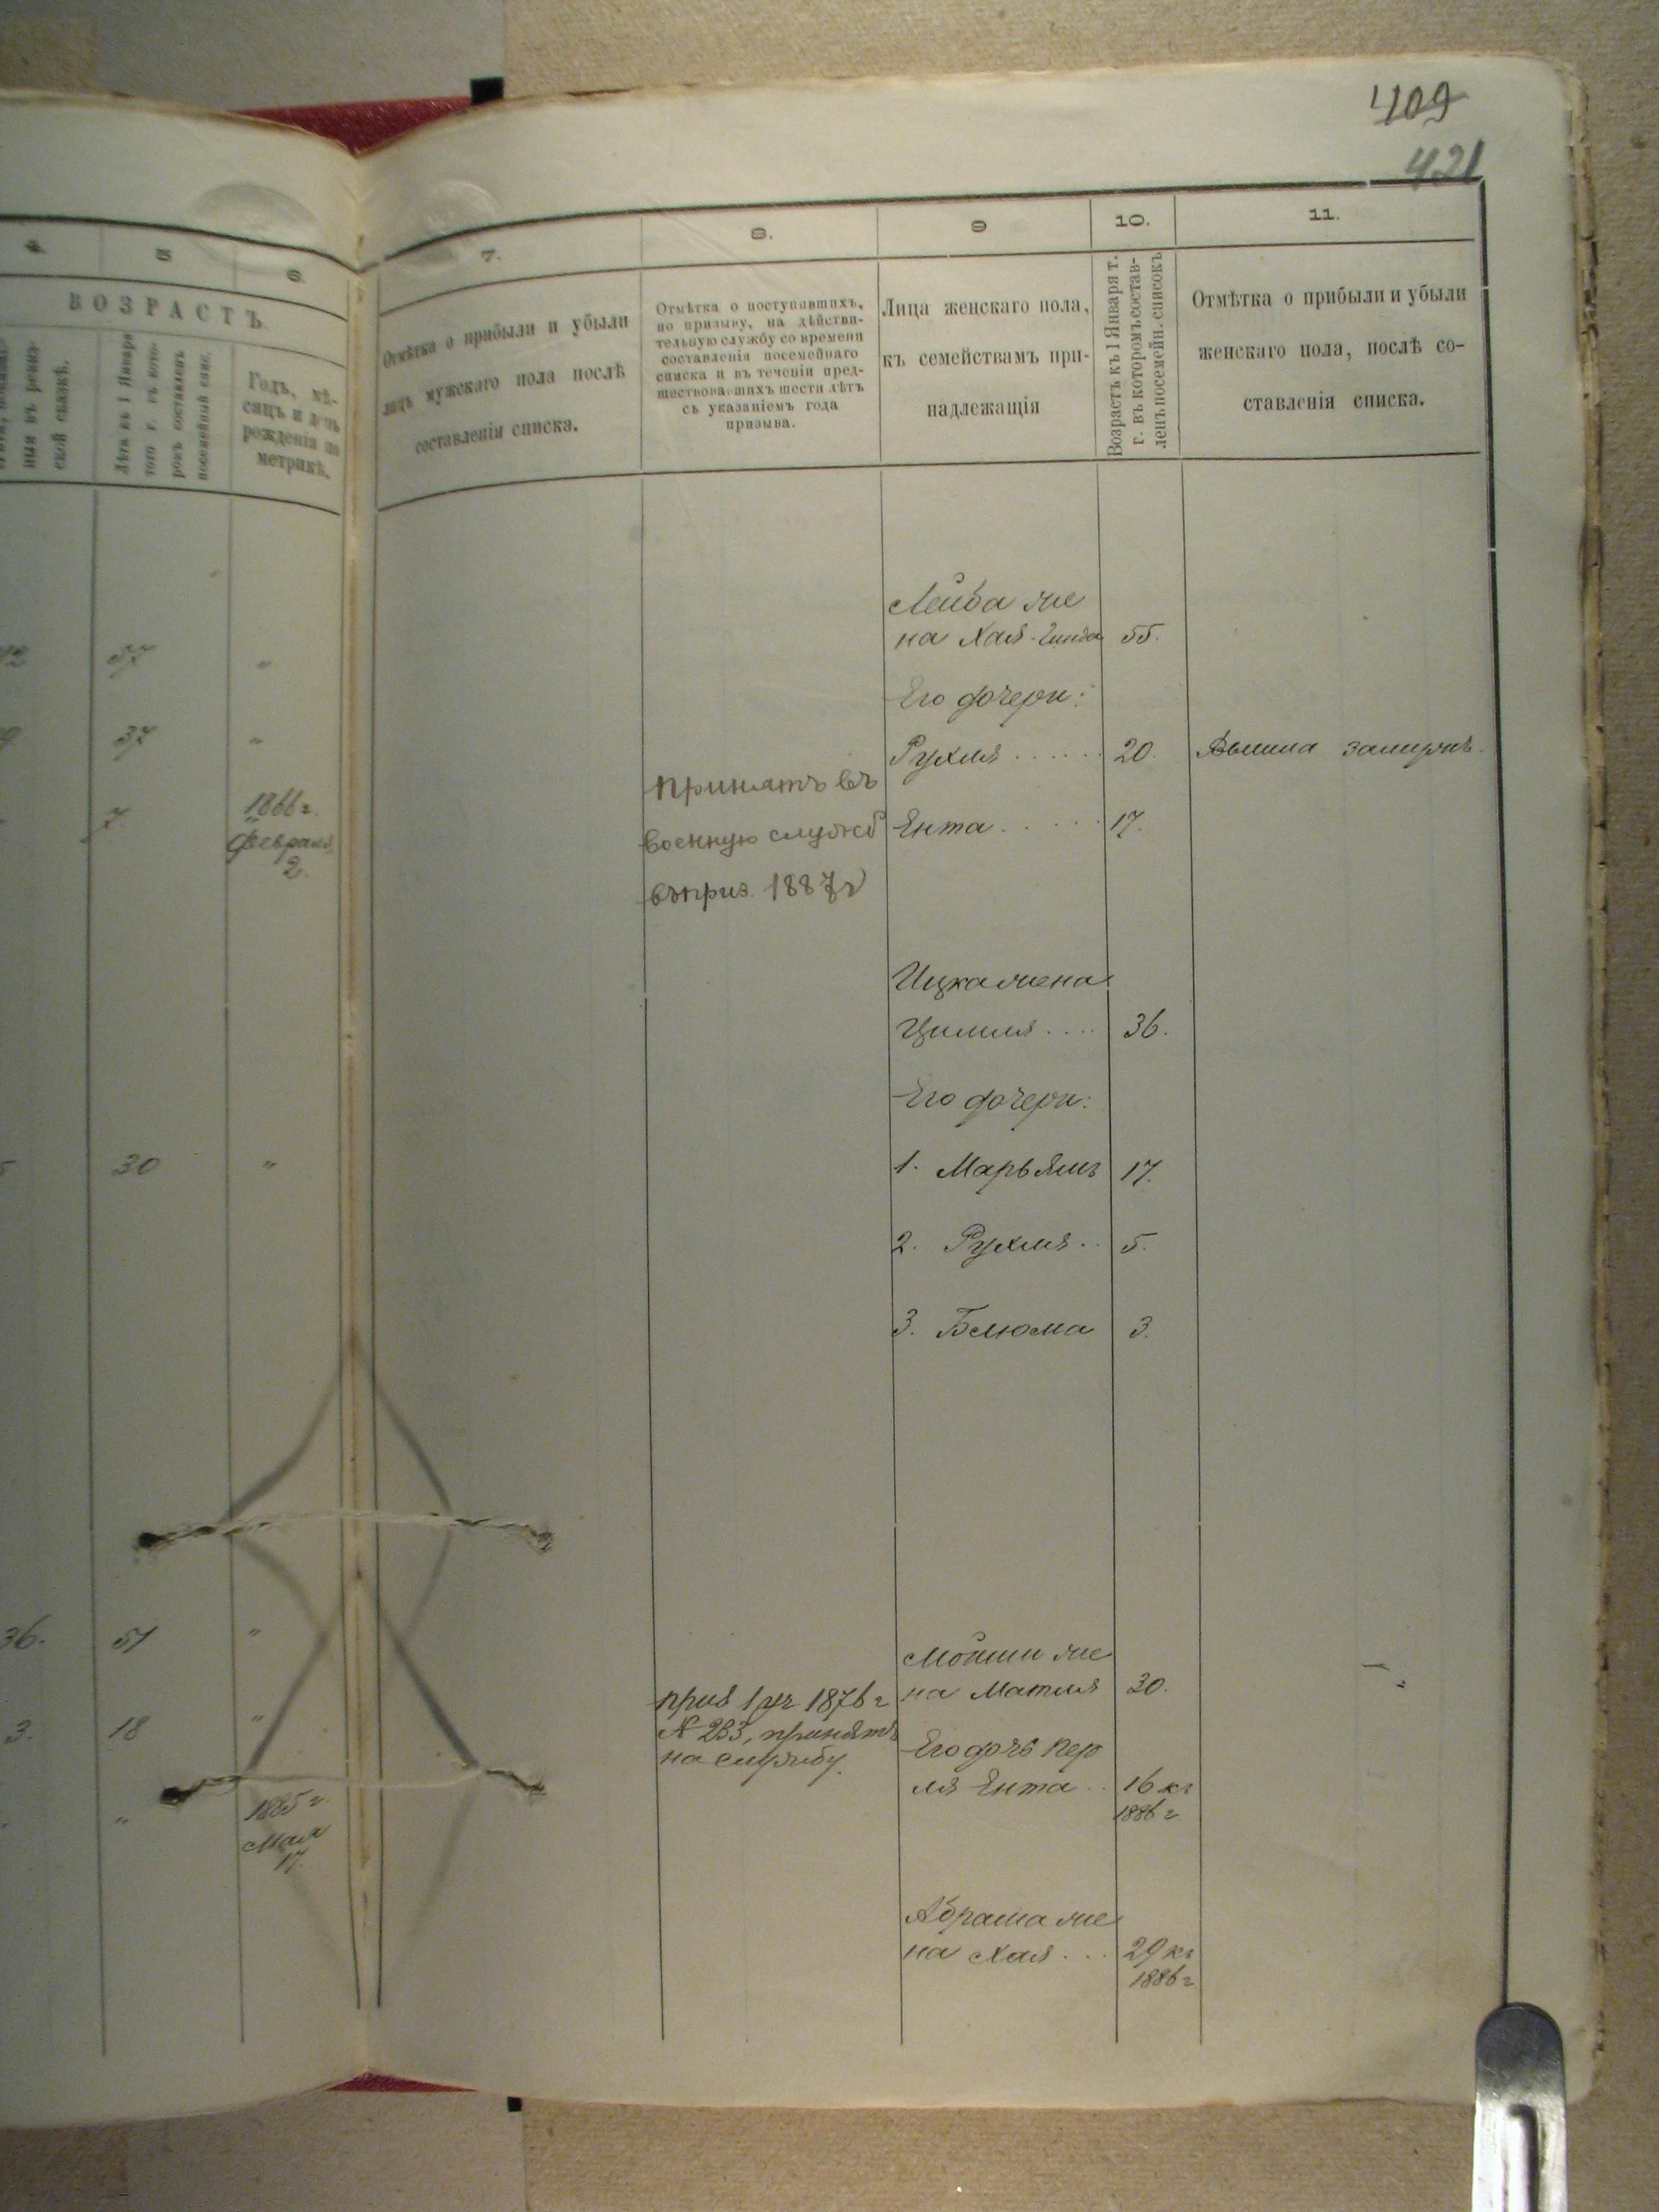 409
421
4.
5
6
7.
8.
9
10.
11.
ВОЗРАСТЪ.
ныя въ ревиз-
ской сказкѣ.
Лѣта къ 1 Января
того г. въ кото-
ромъ составленъ
посемейный спис.
Годъ, мѣ-
сяцъ и день
рожденія по
метрикѣ.
Отмѣтка о прибыли и убыли
лицъ мужскаго пола послѣ
составленія списка.
Отмѣтка о поступившихъ,
по призыву, на дѣйстви-
тельную службу со времени
составленія посемейнаго
списка и въ теченіи пред-
шествовавшихъ шести лѣтъ
съ указаніемъ года
призыва.
Лица женскаго пола,
къ семействамъ при-
надлежащія
Возрастъ къ 1 Января т.
г. въ которомъ состав-
ленъ посемейн. списокъ
Отмѣтка о прибыли и убыли
женскаго пола, послѣ со-
ставленія списка.
Лейба же
на Хая-Гинда 55.
57 "
Его дочери:
37 "
Рухля 20. Вышла замужъ.
7 1866 г.
Февраля
2.
Принятъ въ
военную служб
въ приз. 1887 г
Ента 17.
Ицка жена
Цимля 36.
Его дочери:
30 "
1. Марьямъ 17.
2. Рухля 5.
3. Блюма 3.
36. 51 "
Мошки же
на Матля 30. "
3. 18 "
приз 1 уч. 1876 г
№ 233, принятъ
на службу.
Его дочь Пер
ля Ента 16 къ
1886 г.
" 1865 г.
Мая
17.
Абрама же
на Хая 29 къ
1886 г